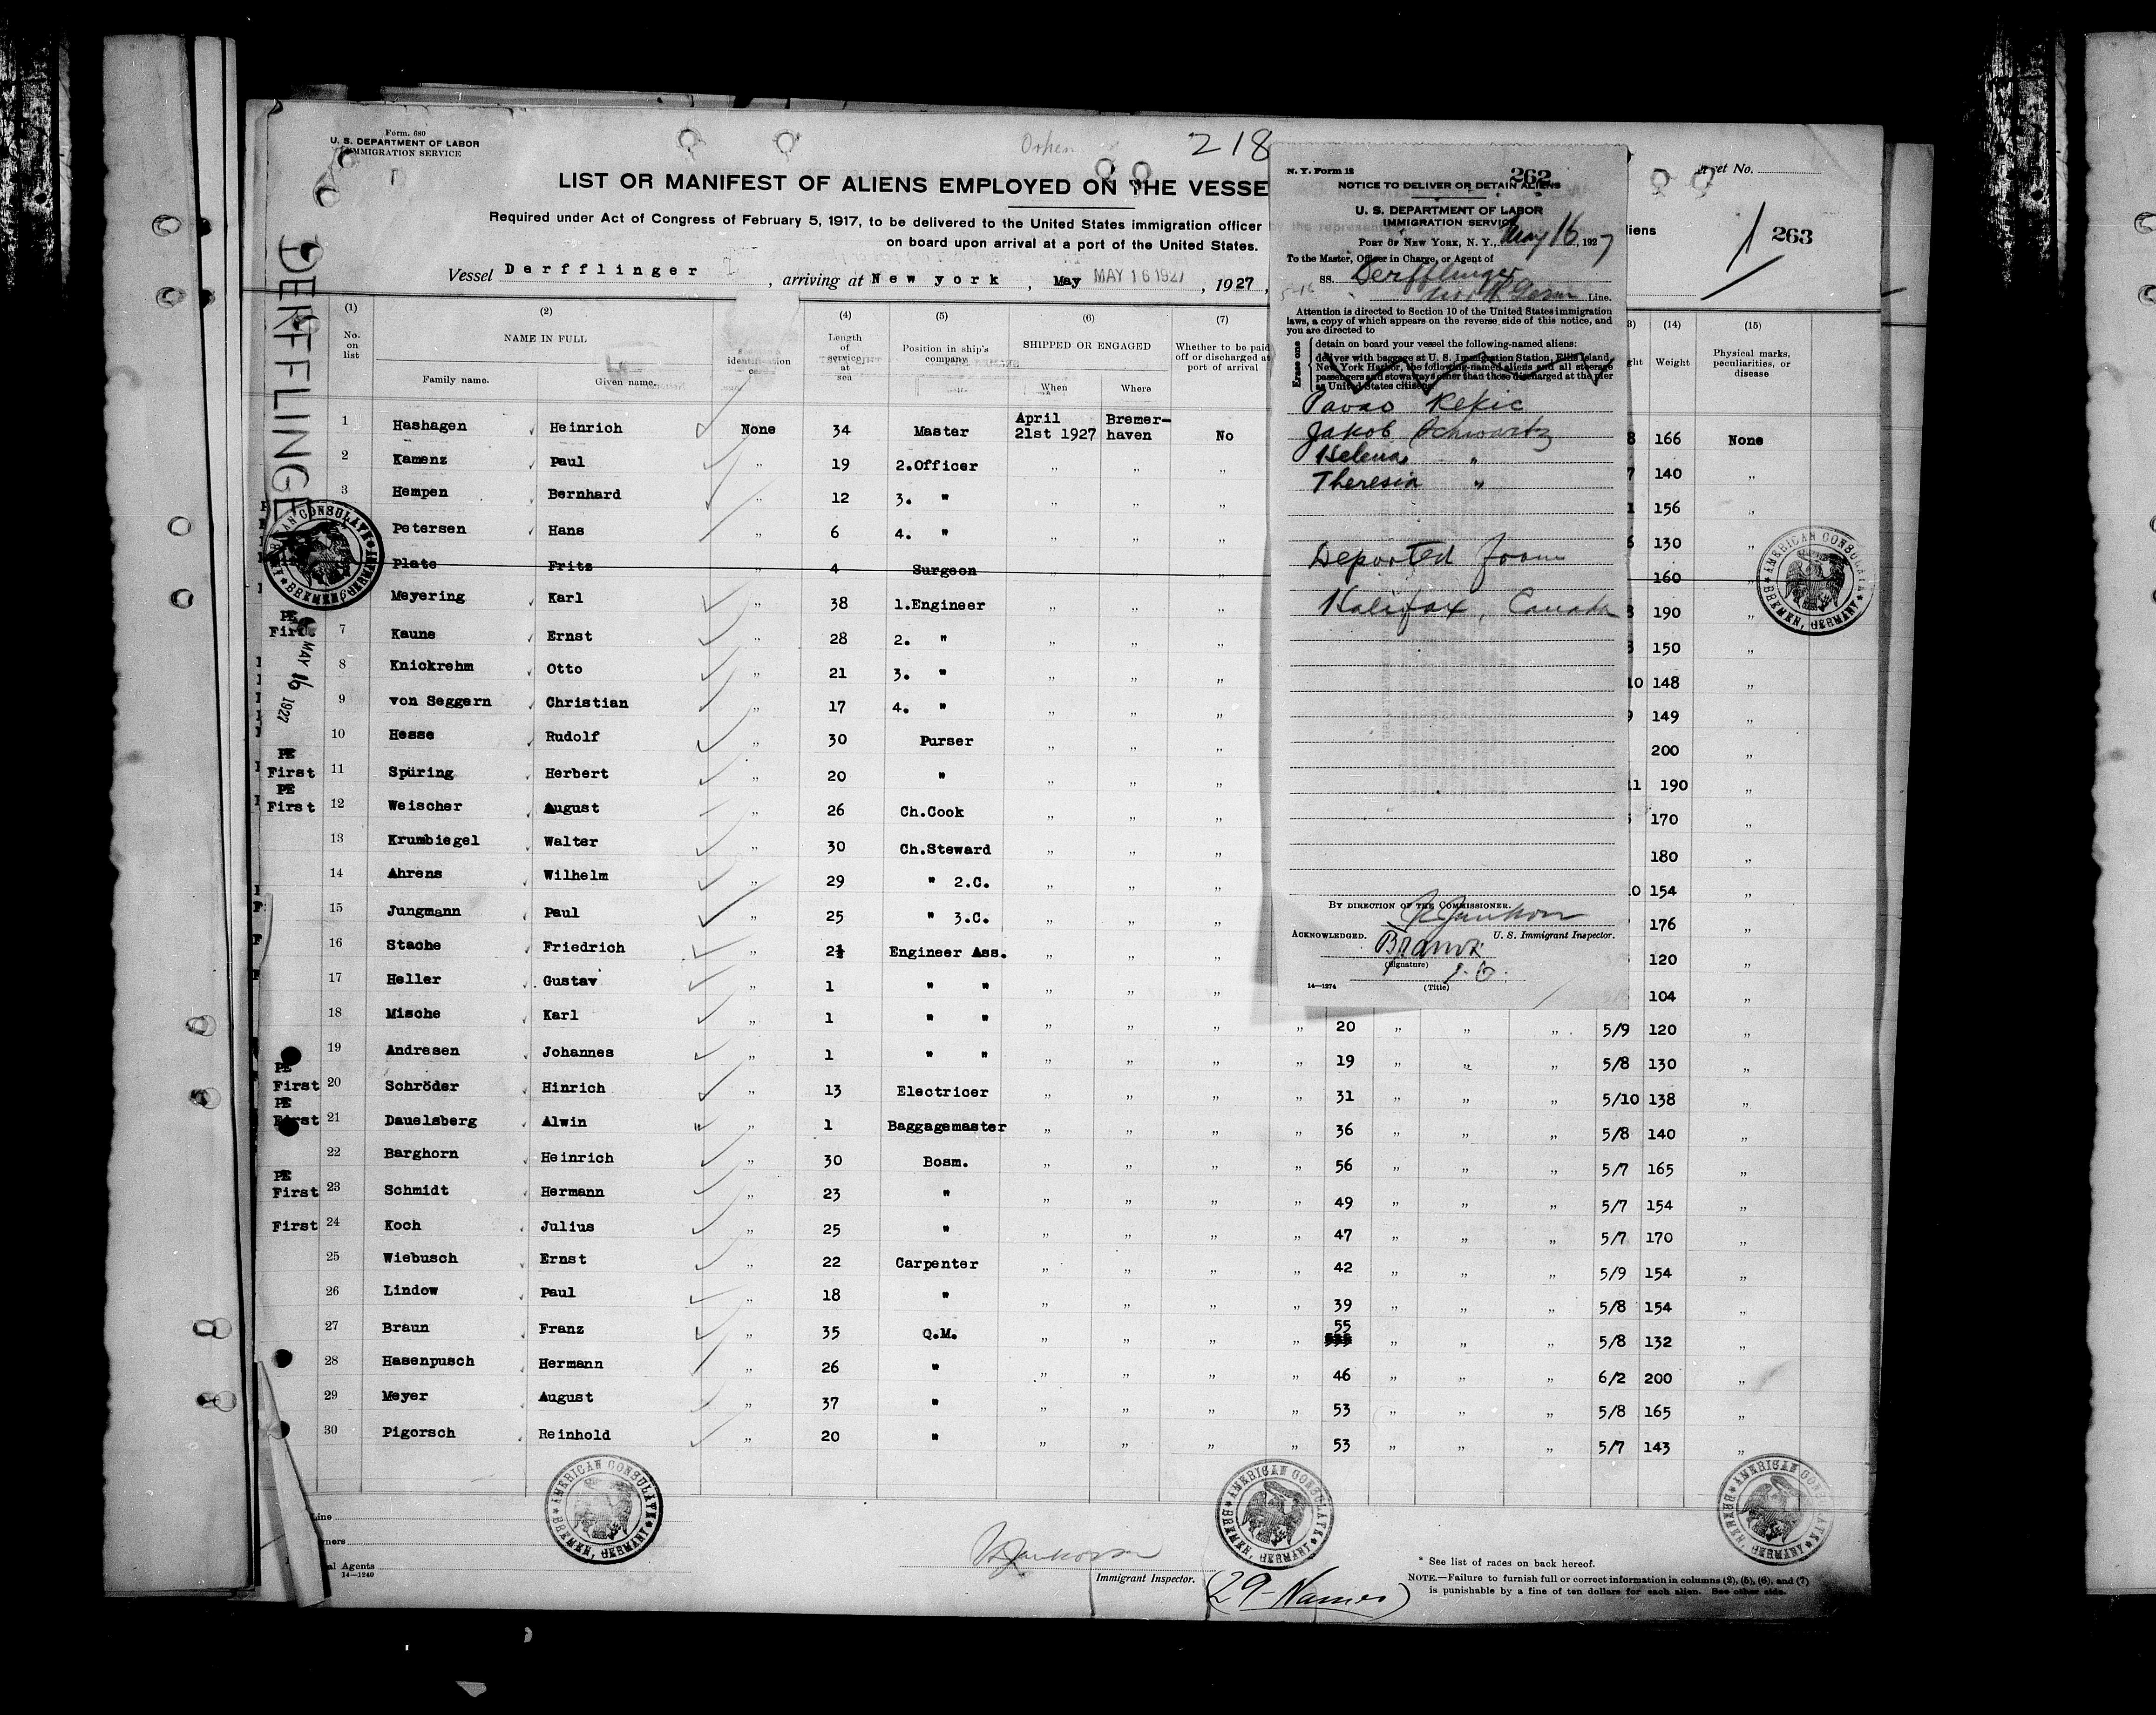 Form. 680
U. S. DEPARTMENT OF LABOR
IMMIGRATION SERVICE
218
LIST OR MANIFEST OF ALIENS EMPLOYED ON THE VESSE
Required under Act of Congress of February 5, 1917, to be delivered to the United States immigration officer
on board upon arrival at a port of the United States.
Vessel Derfflinger, arriving at New york, May MAY 16 1927, 1927,
et No.
liens
263
DERFFLINGE
MAY 16 1927
(1) (2) (4) (5) (6) (7) (14) (15)
No. on list NAME IN FULL Family name. Given name. identification Length of service at sea Position in ship's company SHIPPED OR ENGAGED When Where Whether to be paid off or discharged at port of arrival ght Weight Physical marks, peculiarities, or disease
1 Hashagen Heinrich None 34 Master April 21st 1927 Bremerhaven No 8 166 None
2 Kamenz Paul " 19 2.Officer " " " 7 140 "
3 Hempen Bernhard " 12 3. " " " " 1 156 "
Petersen Hans " 6 4. " " " " 6 130 "
Plate Fritz " 4 Surgeon " " " 160 "
Meyering Karl " 38 1.Engineer " " " 8 190 "
PE First 7 Kaune Ernst " 28 2. " " " " 8 150 "
8 Knickrehm Otto " 21 3. " " " " 10 148 "
9 von Seggern Christian " 17 4. " " " " 9 149 "
10 Hesse Rudolf " 30 Purser " " " 200 "
PE First 11 Spüring Herbert " 20 " " " " 11 190 "
PE First 12 Weischer August " 26 Ch.Cook " " " 170 "
13 Krumbiegel Walter " 30 Ch.Steward " " " 180 "
14 Ahrens Wilhelm " 29 " 2.C. " " " 0 154 "
15 Jungmann Paul " 25 " 3.C. " " " 176 "
16 Stache Friedrich " 2½ Engineer Ass. " " " 120 "
17 Heller Gustav " 1 " " " " " 104 "
18 Mische Karl " 1 " " " " " " 20 " " " 5/9 120 "
19 Andresen Johannes " 1 " " " " " " 19 " " " 5/8 130 "
PE First 20 Schröder Hinrich " 13 Electricer " " " " 31 " " " 5/10 138 "
PE First 21 Dauelsberg Alwin " 1 Baggagemaster " " " " 36 " " " 5/8 140 "
22 Barghorn Heinrich " 30 Bosm. " " " " 56 " " " 5/7 165 "
PE First 23 Schmidt Hermann " 23 " " " " " 49 " " " 5/7 154 "
First 24 Koch Julius " 25 " " " " " 47 " " " 5/7 170 "
25 Wiebusch Ernst " 22 Carpenter " " " " 42 " " " 5/9 154 "
26 Lindow Paul " 18 " " " " " 39 " " " 5/8 154 "
27 Braun Franz " 35 Q.M. " " " " 55 " " " 5/8 132 "
28 Hasenpusch Hermann " 26 " " " " " 46 " " " 6/2 200 "
29 Meyer August " 37 " " " " " 53 " " " 5/8 165 "
30 Pigorsch Reinhold " 20 " " " " " 53 " " " 5/7 143 "
N. Y. Form 12
262
NOTICE TO DELIVER OR DETAIN ALIENS
U. S. DEPARTMENT OF LABOR
IMMIGRATION SERVICE
PORT OF NEW YORK, N. Y., May 16, 1927
To the Master, Officer in Charge, or Agent of
SS. Derfflinger
North Germ Line.
Attention is directed to Section 10 of the United States immigration
laws, a copy of which appears on the reverse side of this notice, and
you are directed to
Erase one
detain on board your vessel the following-named aliens:
deliver with baggage at U. S. Immigration Station, Ellis Island,
New York Harbor, the following-named aliens and all steerage
passengers and stowaways other than those discharged at the pier
as United States citizens:
Pavao Kekic
Jakob Schwartz
Helena "
Theresia "
Deported from
Halifax, Canada
BY DIRECTION OF THE COMMISSIONER.
U. S. Immigrant Inspector.
ACKNOWLEDGED.
(Signature)
(Title)
14—1274
AMERICAN CONSULATE
BREMEN, GERMANY
AMERICAN CONSULATE
BREMEN, GERMANY
AMERICAN CONSULATE
BREMEN, GERMANY
AMERICAN CONSULATE
BREMEN, GERMANY
AMERICAN CONSULATE
BREMEN, GERMANY
Line
ners
al Agents
14—1240
Immigrant Inspector.
(29-Names)
* See list of races on back hereof.
NOTE.—Failure to furnish full or correct information in columns (2), (5), (6), and (7)
is punishable by a fine of ten dollars for each alien. See other side.